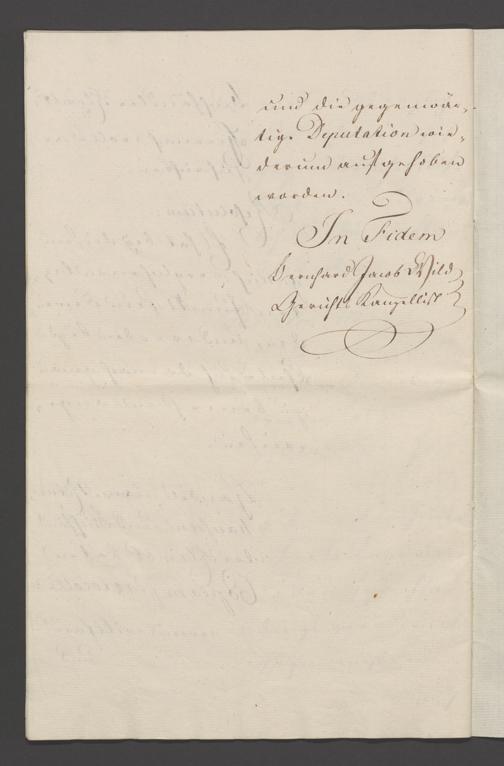 und die gegenwär-
tige Deputation wie-
derum aufgehoben
worden.
In Fidem
Bernhard Jacob Wild
Gerichts Kanzellist